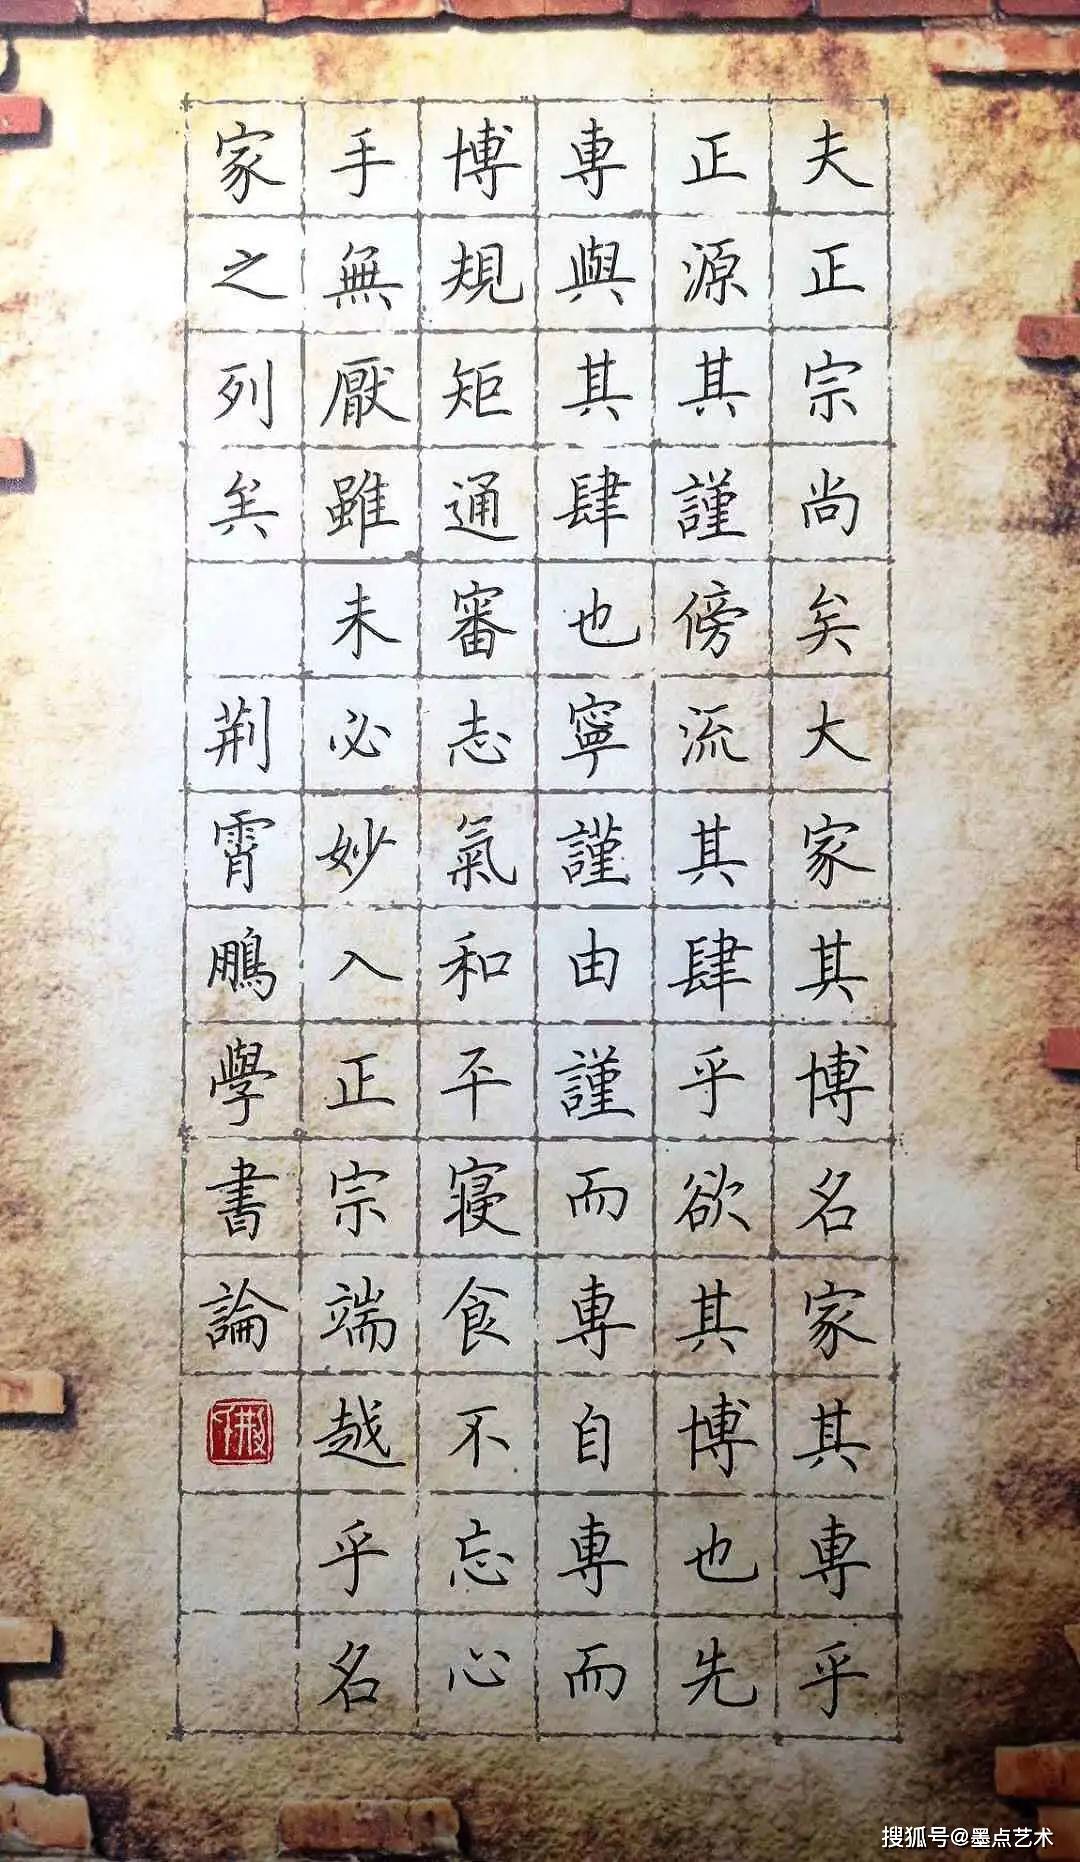 夫正宗尚矣大家其博名家其専乎
正源其謹傍流其肆乎欲其博也先
専與其肆也寧謹由謹而専自専而
博規矩通審志氣和平寝食不忘心
手無厭雖未必妙入正宗端越乎名
家之列矣
荆霄鵬學書論
搜狐号@墨点艺术